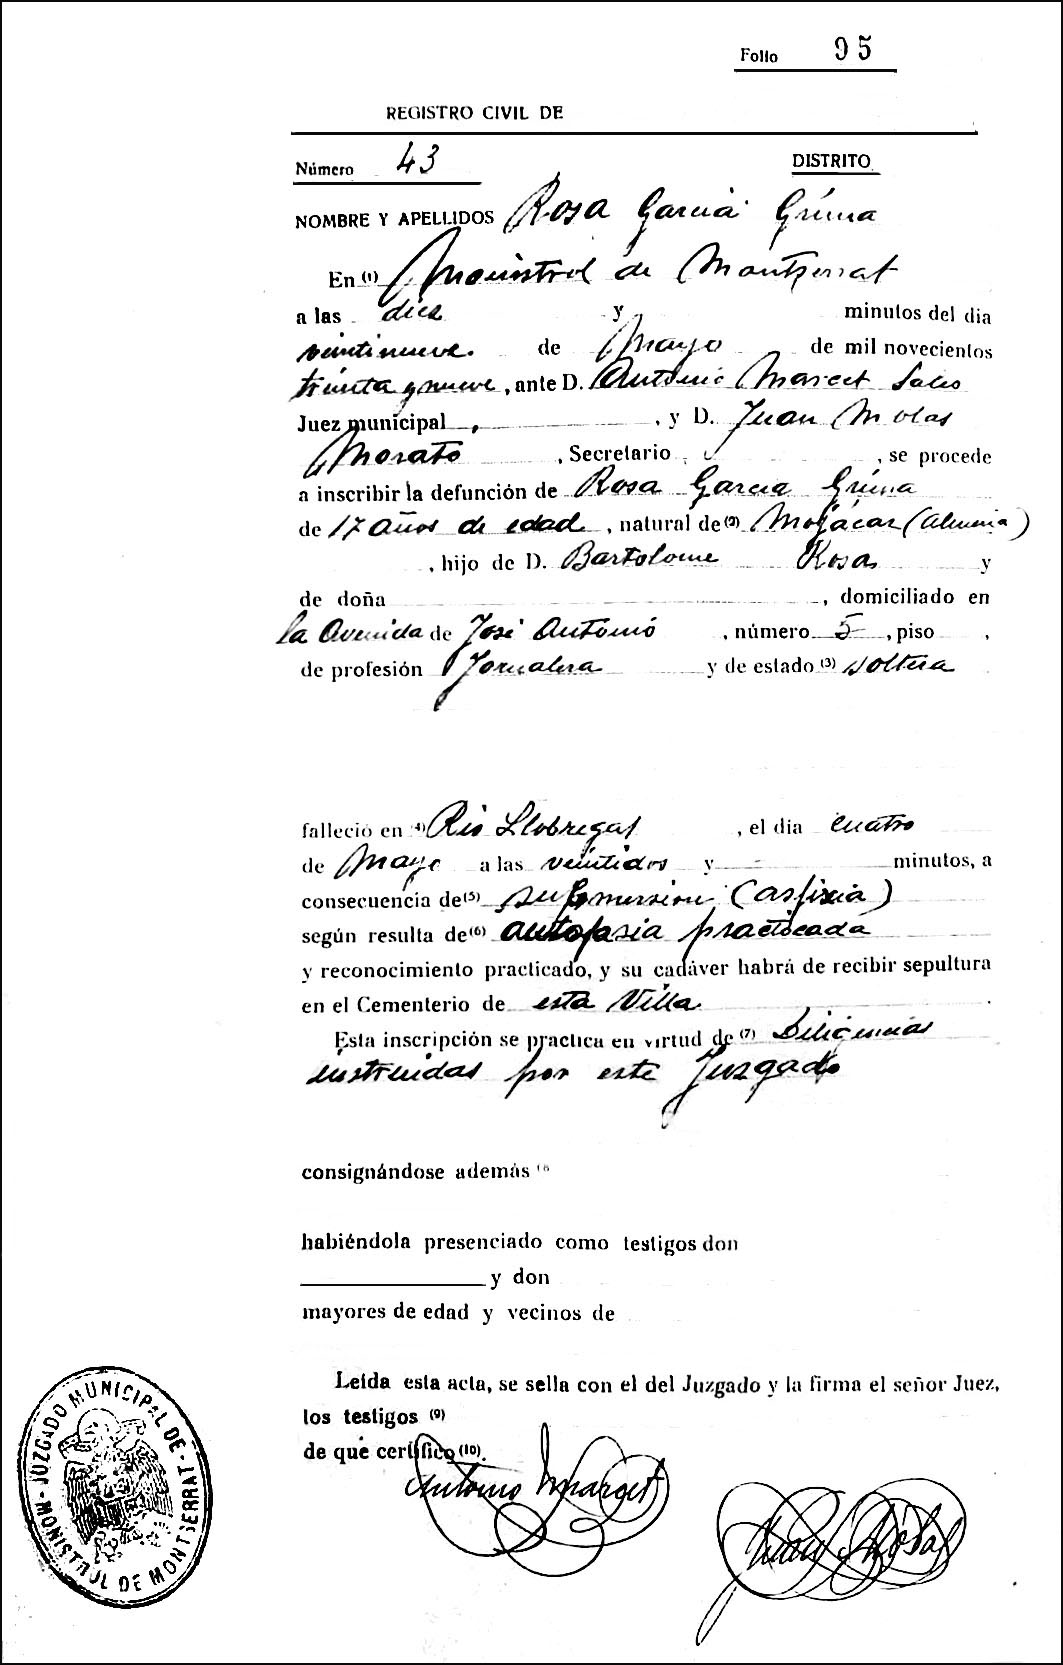 Folio 95
REGISTRO CIVIL DE
Número 43 DISTRITO
NOMBRE Y APELLIDOS Rosa Garcia Grima
En (1) Monistrol de Montserrat
a las diez y minutos del dia
veintinueve de Mayo de mil novecientos
treinta y nueve, ante D. Antonio Marcet Sales
Juez municipal, y D. Juan Molas
Morato, Secretario, se procede
a inscribir la defunción de Rosa Garcia Grima
de 17 años de edad, natural de (2) Mojácar (Almeria)
, hijo de D. Bartolome Rosa y
de doña , domiciliado en
la Avenida de José Antonio, número 5, piso ,
de profesión Jornalera y de estado (3) soltera
falleció en (4) Rio Llobregat, el dia cuatro
de Mayo a las veintidos y - minutos, a
consecuencia de (5) submersion (asfixia)
según resulta de (6) autopsia practicada
y reconocimiento practicado, y su cadáver habrá de recibir sepultura
en el Cementerio de esta Villa.
Esta inscripción se practica en virtud de (7) Diligencias
instruidas por este Juzgado
consignándose además (8)
habiéndola presenciado como testigos don
y don
mayores de edad y vecinos de
Leida esta acta, se sella con el del Juzgado y la firma el señor Juez,
los testigos (9)
de que certifico (10).
Antonio Marcet
Juan Molas
JUZGADO MUNICIPAL DE - MONISTROL DE MONTSERRAT -